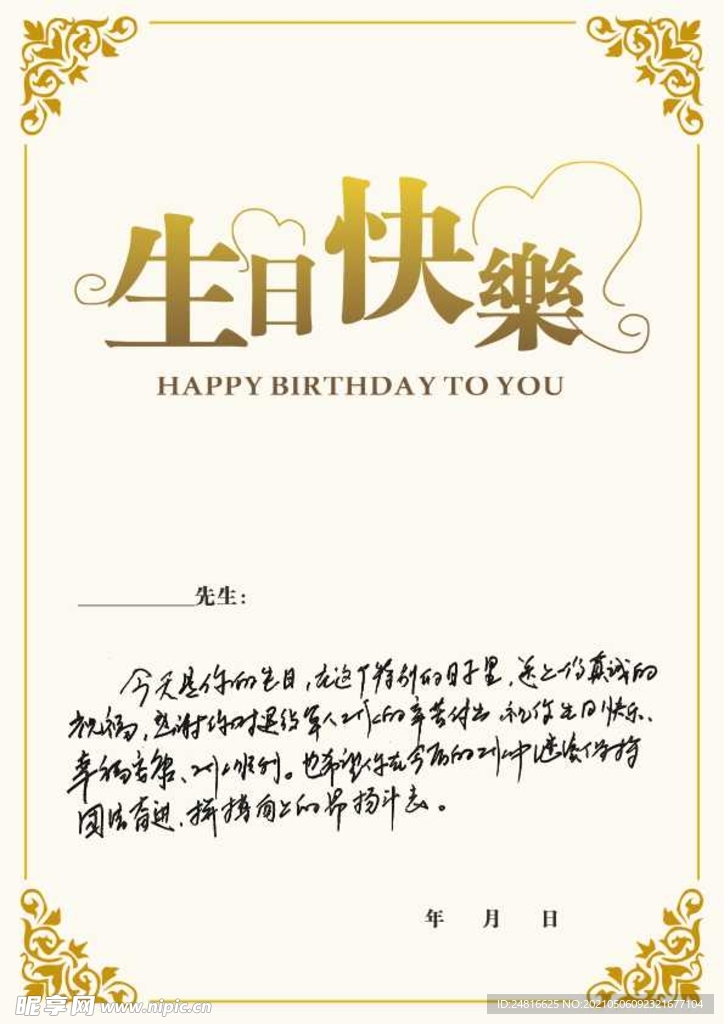 生日快樂
HAPPY BIRTHDAY TO YOU
先生：
今天是你的生日，在这个特别的日子里，送上一份真诚的
祝福，感谢你对退役军人工作的辛苦付出，祝你生日快乐、
幸福安康、工作顺利。也希望你在今后的工作中继续保持
团结奋进、拼搏向上的昂扬斗志。
年 月 日
昵享网 www.nipic.cn
ID:24816625 NO:20210506092321677104